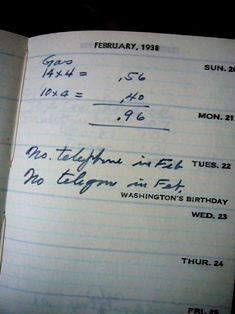 FEBRUARY, 1938
Gas
SUN. 20
14x4 = .56
10x4 = .40
.96
MON. 21
No. telephone in Feb
TUES. 22
No telegram in Feb.
WASHINGTON'S BIRTHDAY
WED. 23
THUR. 24
FRI. 25